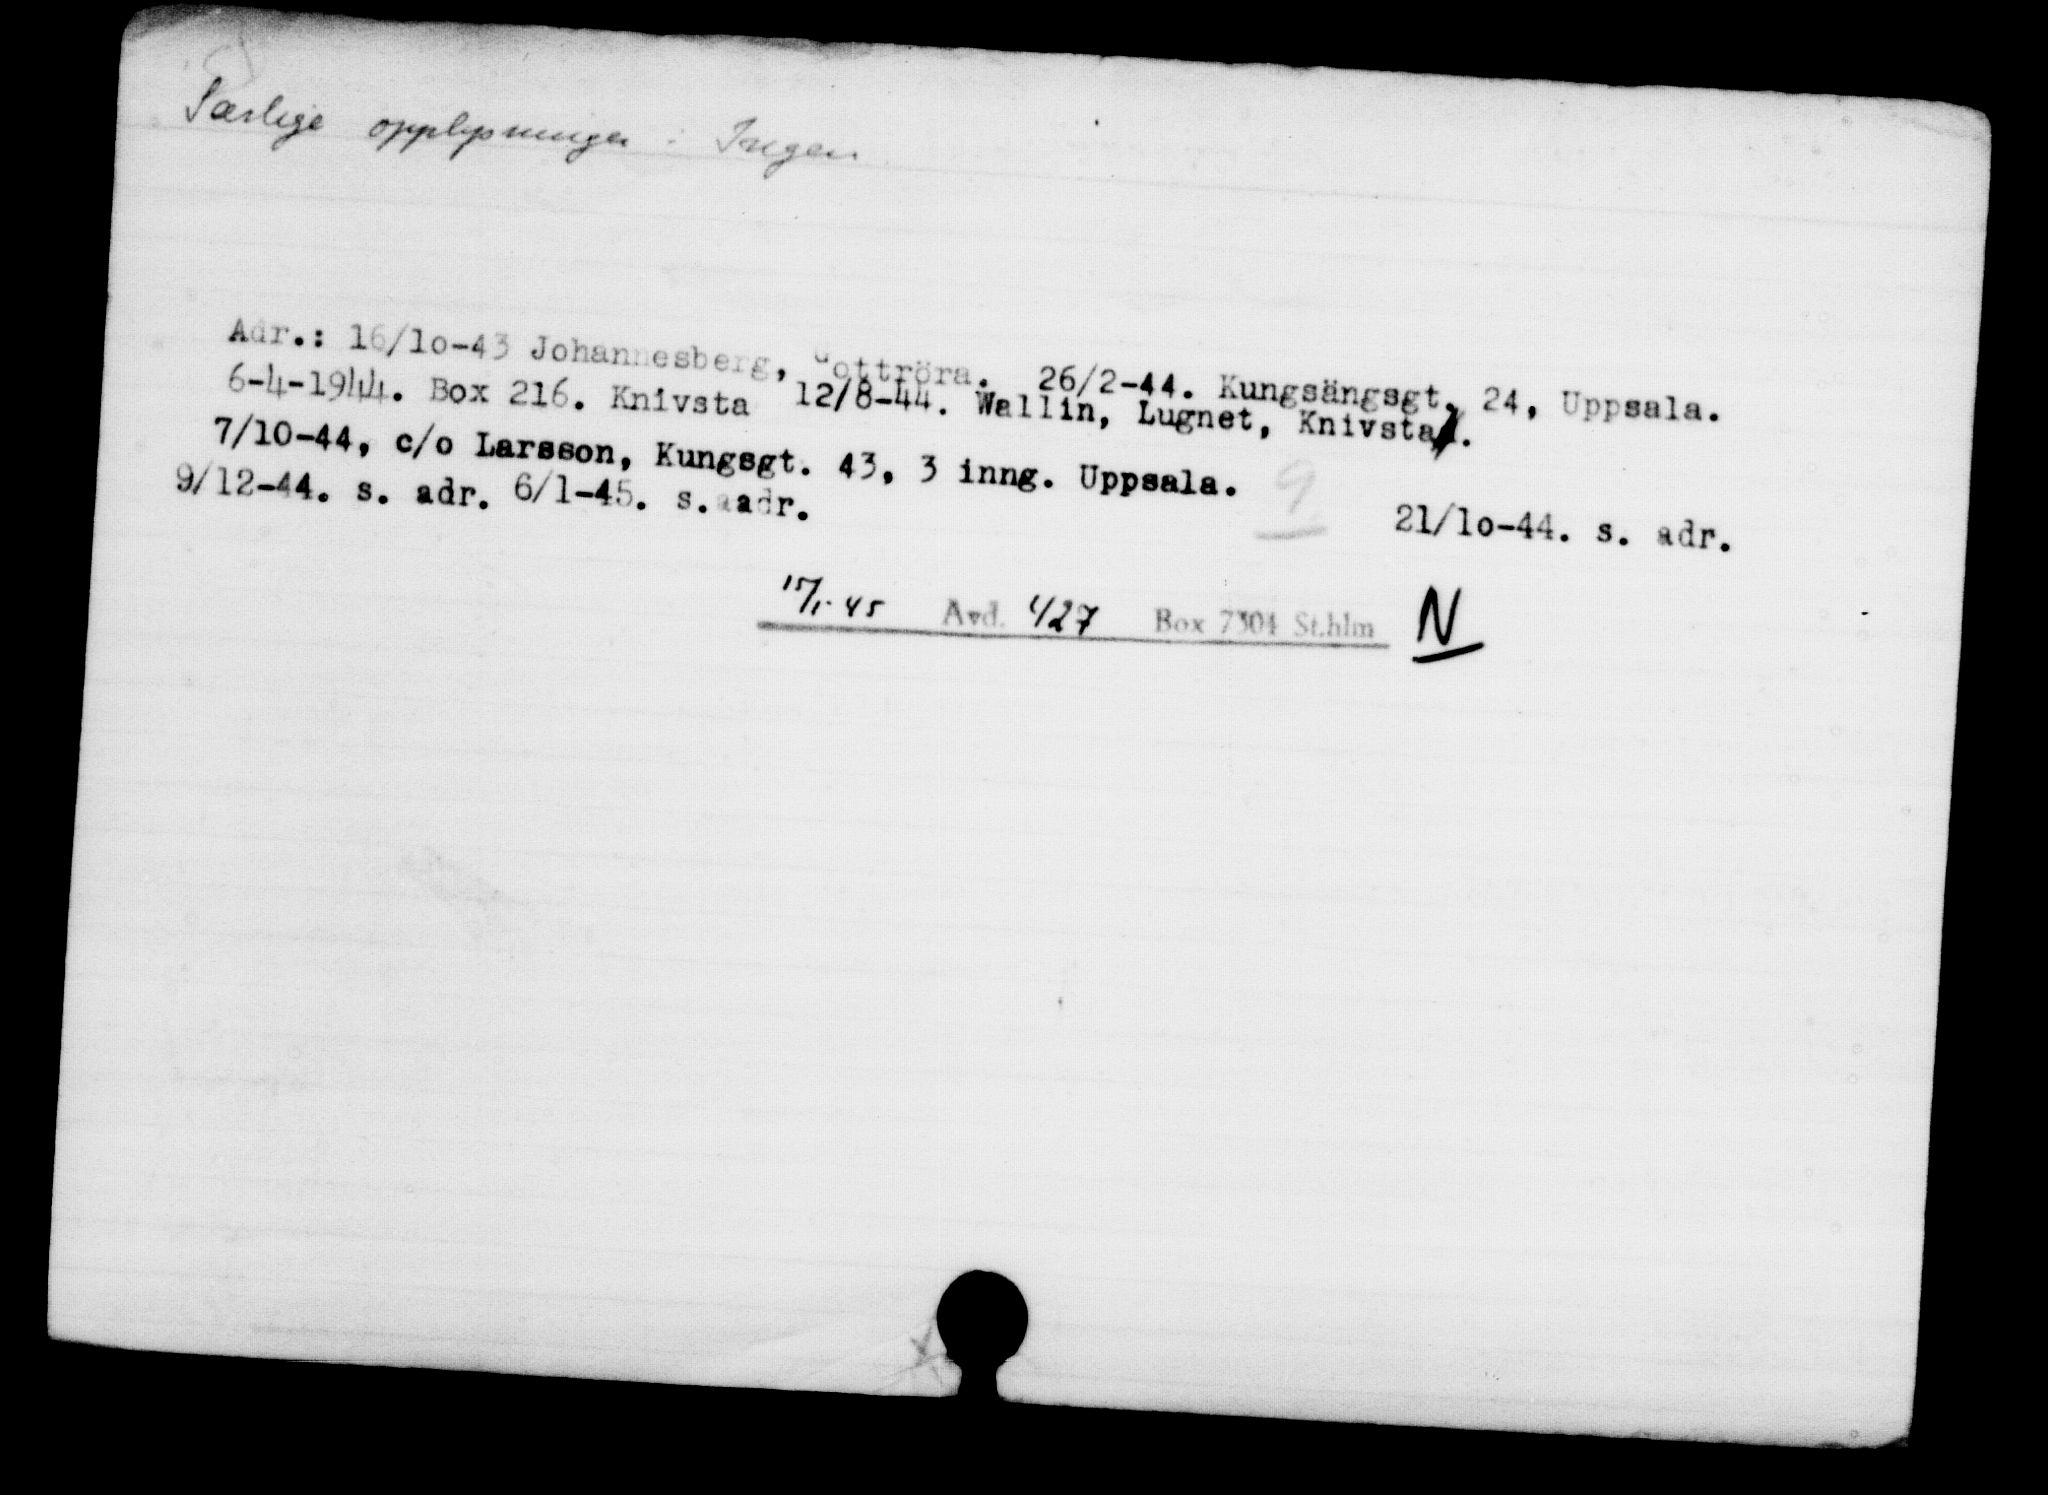 Særlige opplysninger : Ingen
Adr.: 16/1o-43 Johannesberg, Gottröra. 26/2-44. Kungsängsgt. 24, Uppsala.
6-4-1944. Box 216. Knivsta 12/8-44. Wallin, Lugnet, Knivsta.
7/10-44, c/o Larsson, Kungsgt. 43, 3 inng. Uppsala.
9
21/1o-44. s. adr.
9/12-44. s. adr. 6/1-45. s.aadr.
15/1-45 Avd. 427 Box 7304 St.hlm N